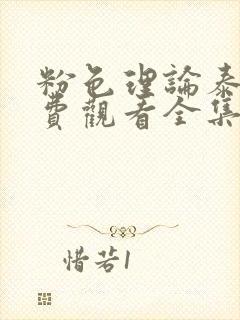 粉色理論泰
費觀看全集
惜若1